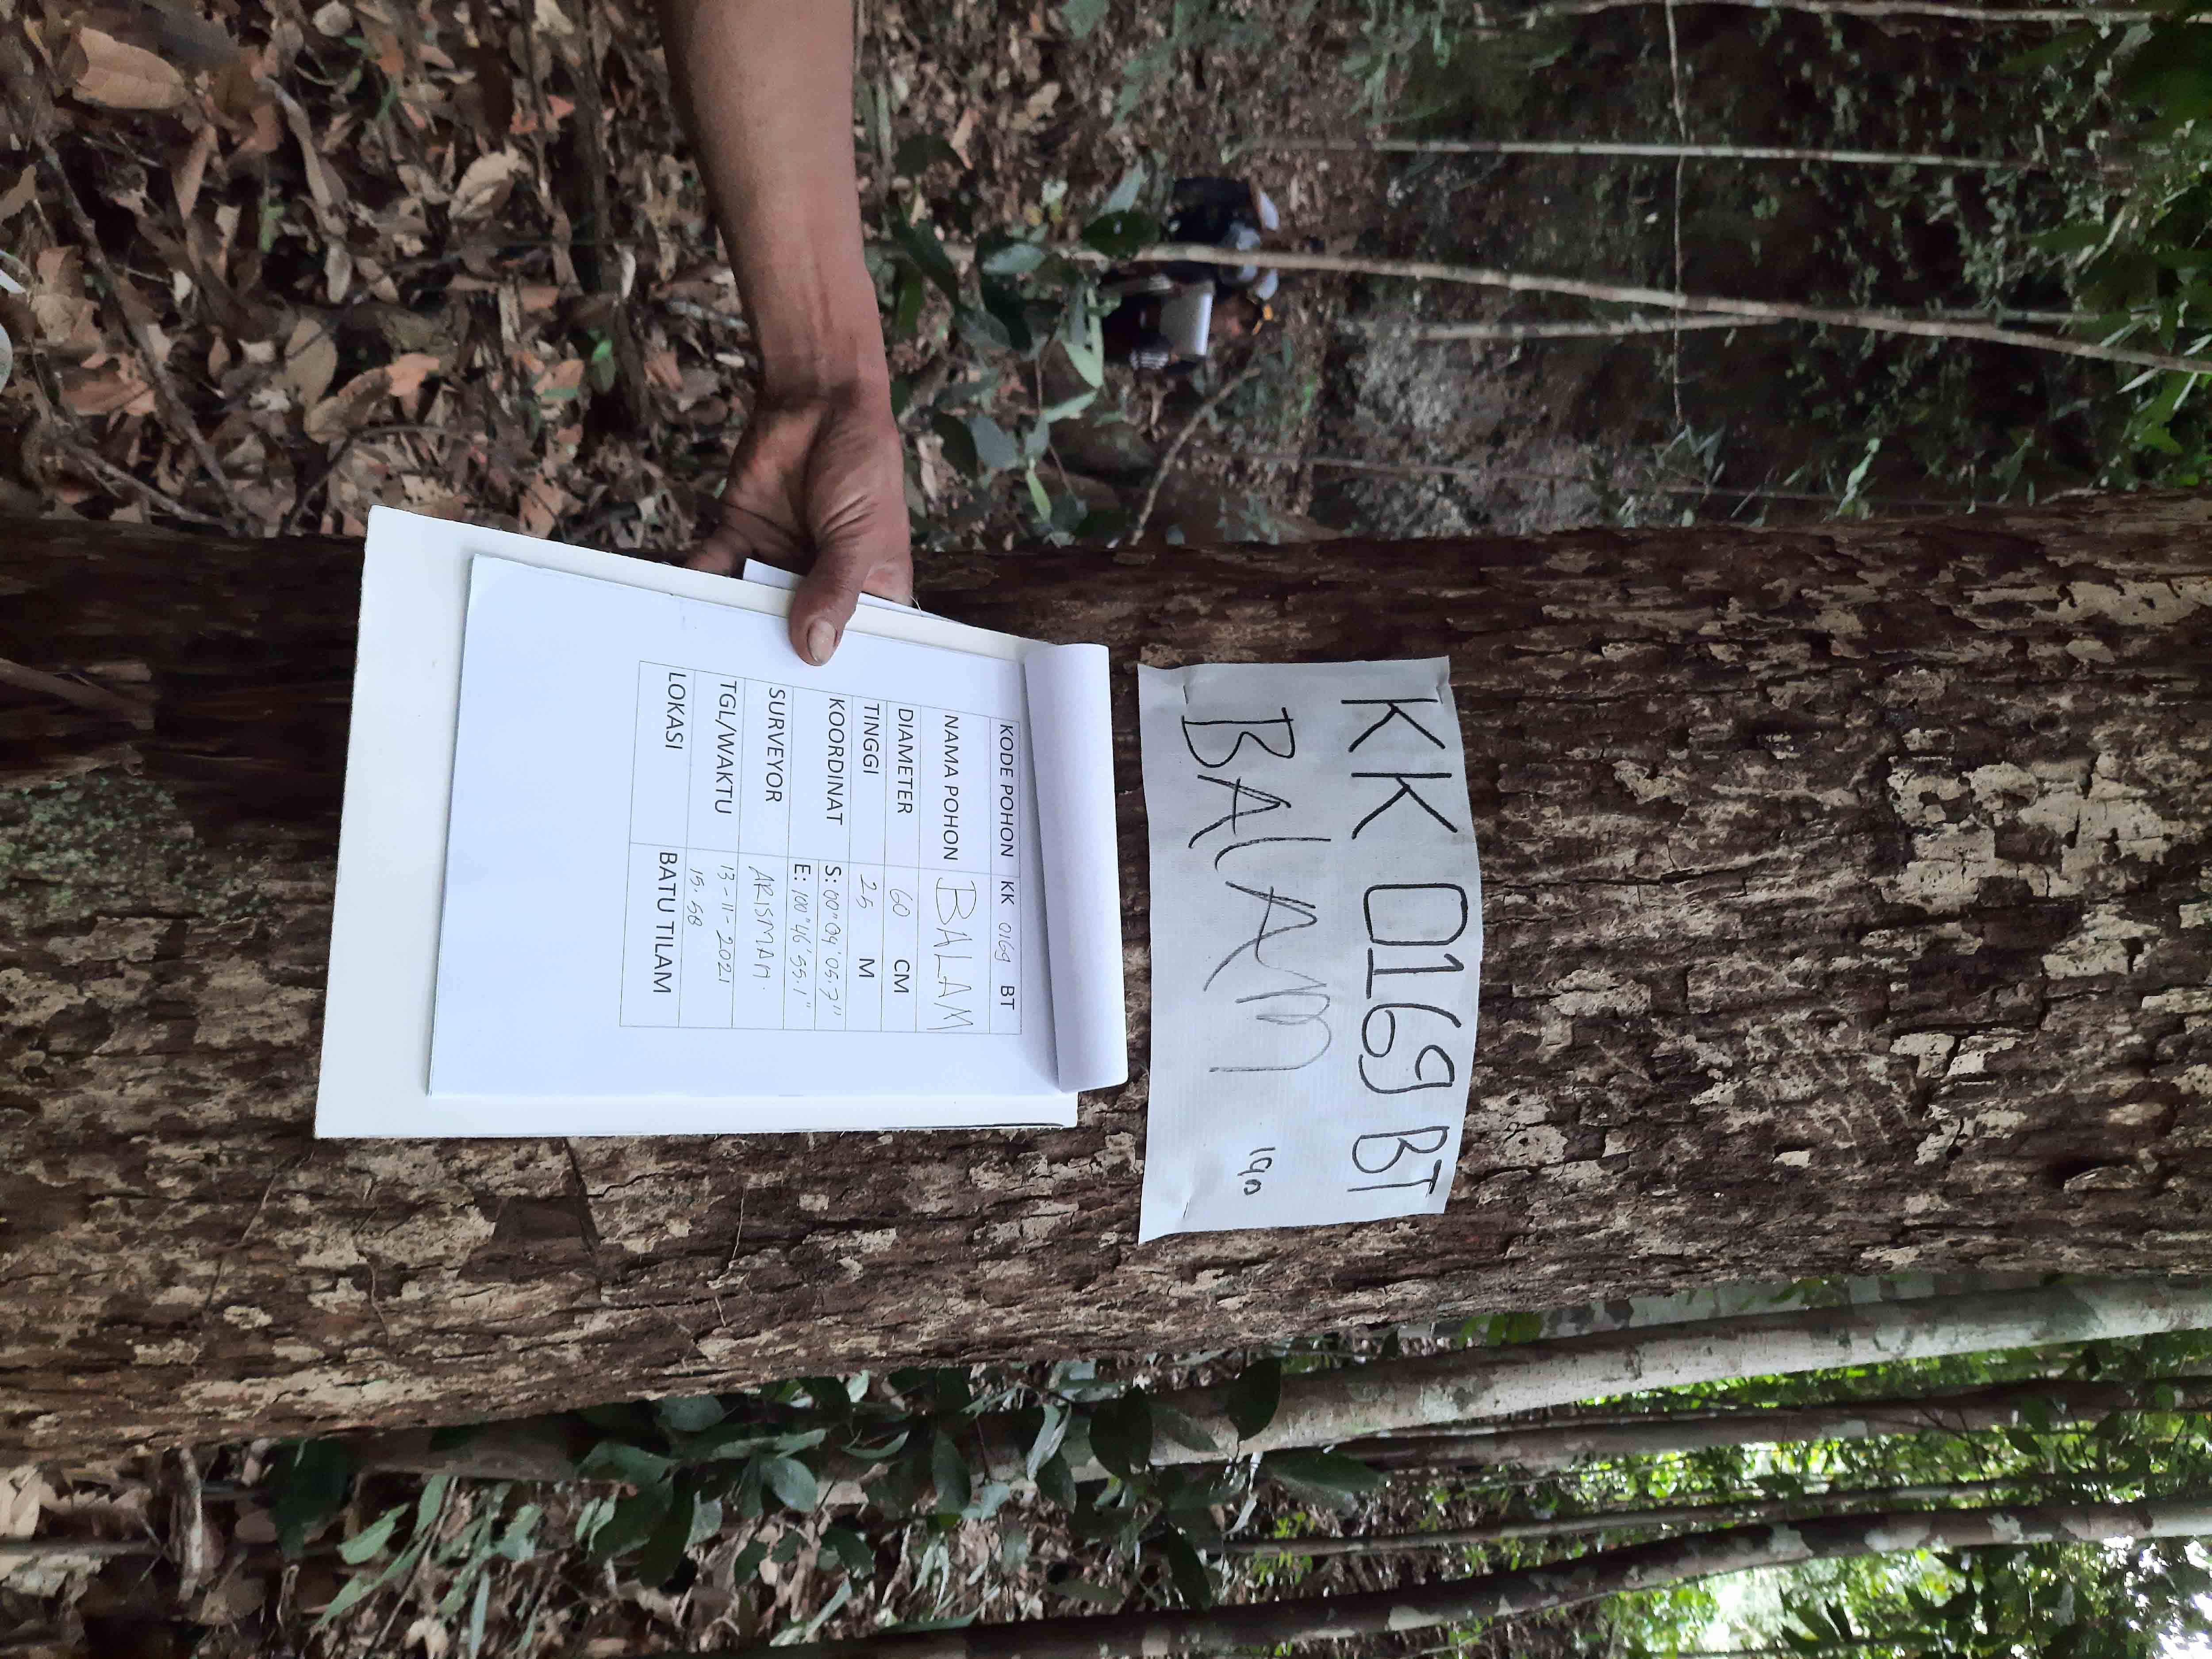 KK 0169 BT
BALAM
190
KODE POHON KK 0169 BT
NAMA POHON BALAM
DIAMETER 60 CM
TINGGI 25 M
KOORDINAT S: 00°09'05.7"
E: 100°46'55.1"
SURVEYOR ARISMAN.
TGL/WAKTU 13-11-2021
15.58
LOKASI BATU TILAM